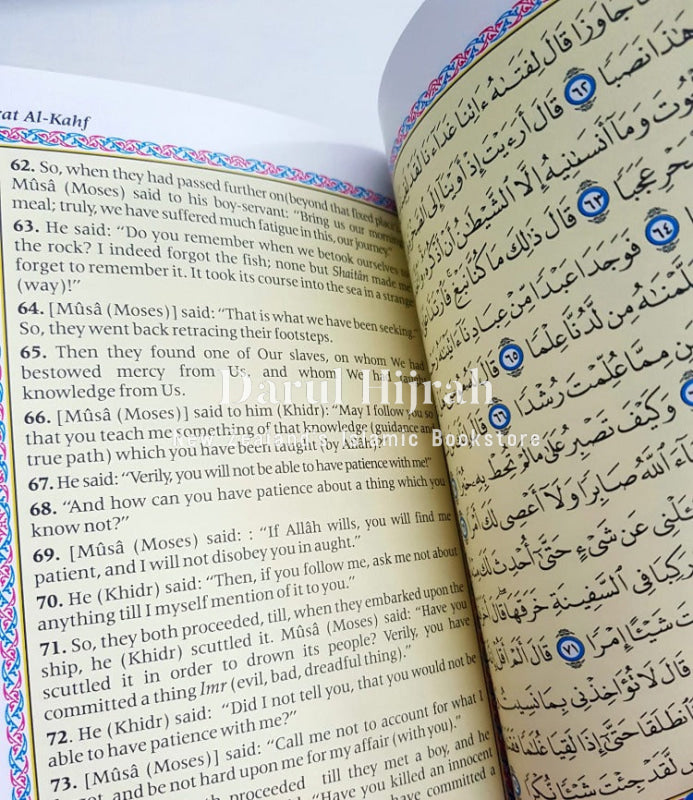 rat Al-Kahf
62. So, when they had passed further on(beyond that fixed place),
Mûsâ (Moses) said to his boy-servant: “Bring us our morning
meal; truly, we have suffered much fatigue in this, our journey”
63. He said: “Do you remember when we betook ourselves to
the rock? I indeed forgot the fish; none but Shaitân made me
forget to remember it. It took its course into the sea in a strange
(way)!”
64. [Mûsâ (Moses)] said: “That is what we have been seeking.”
So, they went back retracing their footsteps.
65. Then they found one of Our slaves, on whom We had
bestowed mercy from Us, and whom We had taught
knowledge from Us.
66. [Mûsâ (Moses)] said to him (Khidr): “May I follow you so
that you teach me something of that knowledge (guidance and
true path) which you have been taught (by Allâh)?”
67. He said: “Verily, you will not be able to have patience with me!”
68. “And how can you have patience about a thing which you
know not?”
69. [Mûsâ (Moses) said: : “If Allâh wills, you will find me
patient, and I will not disobey you in aught.”
70. He (Khidr) said: “Then, if you follow me, ask me not about
anything till I myself mention of it to you.”
71. So, they both proceeded, till, when they embarked upon the
ship, he (Khidr) scuttled it. Mûsâ (Moses) said: “Have you
scuttled it in order to drown its people? Verily, you have
committed a thing Imr (evil, bad, dreadful thing).”
72. He (Khidr) said: “Did I not tell you, that you would not be
able to have patience with me?”
73. [Mûsâ (Moses)] said: “Call me not to account for what I
and be not hard upon me for my affair (with you).”
proceeded till they met a boy, and he
“Have you killed an innocent
have committed a
Darul Hijrah
New Zealand's Islamic Bookstore
جَاوَزَا قَالَ لِفَتَىٰهُ ءَاتِنَا غَدَآءَنَا
هَٰذَا نَصَبًا ٦٢ قَالَ أَرَءَيْتَ إِذْ أَوَيْنَآ إِلَى
وَمَآ أَنسَىٰنِيهُ إِلَّا ٱلشَّيْطَٰنُ أَنْ أَذْكُرَهُۥ
عَجَبًا ٦٣ قَالَ ذَٰلِكَ مَا كُنَّا نَبْغِ
٦٤ فَوَجَدَا عَبْدًا مِّنْ عِبَادِنَآ ءَاتَيْنَٰهُ
مِن لَّدُنَّا عِلْمًا ٦٥ قَالَ
مِمَّا عُلِّمْتَ رُشْدًا ٦٦ قَالَ
وَكَيْفَ تَصْبِرُ عَلَىٰ مَا لَمْ تُحِطْ بِهِۦ
ٱللَّهُ صَابِرًا وَلَآ أَعْصِى لَكَ
عَن شَىْءٍ حَتَّىٰٓ أُحْدِثَ لَكَ
رَكِبَا فِى ٱلسَّفِينَةِ خَرَقَهَا قَالَ
شَيْـًٔا إِمْرًا ٧١ قَالَ أَلَمْ أَقُلْ
قَالَ لَا تُؤَاخِذْنِى بِمَا نَسِيتُ
فَٱنطَلَقَا حَتَّىٰٓ إِذَا لَقِيَا غُلَٰمًا
لَّقَدْ جِئْتَ شَيْـًٔا نُّكْرًا